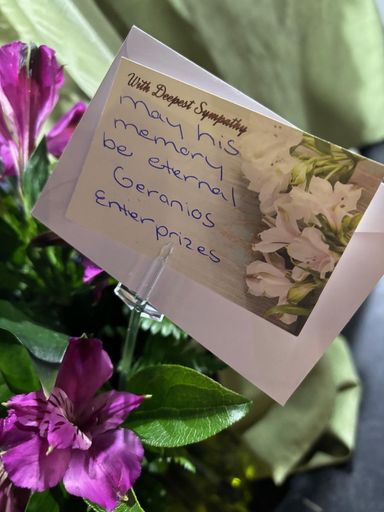 With Deepest Sympathy
may his
memory
be eternal
Geranios
Enterprizes